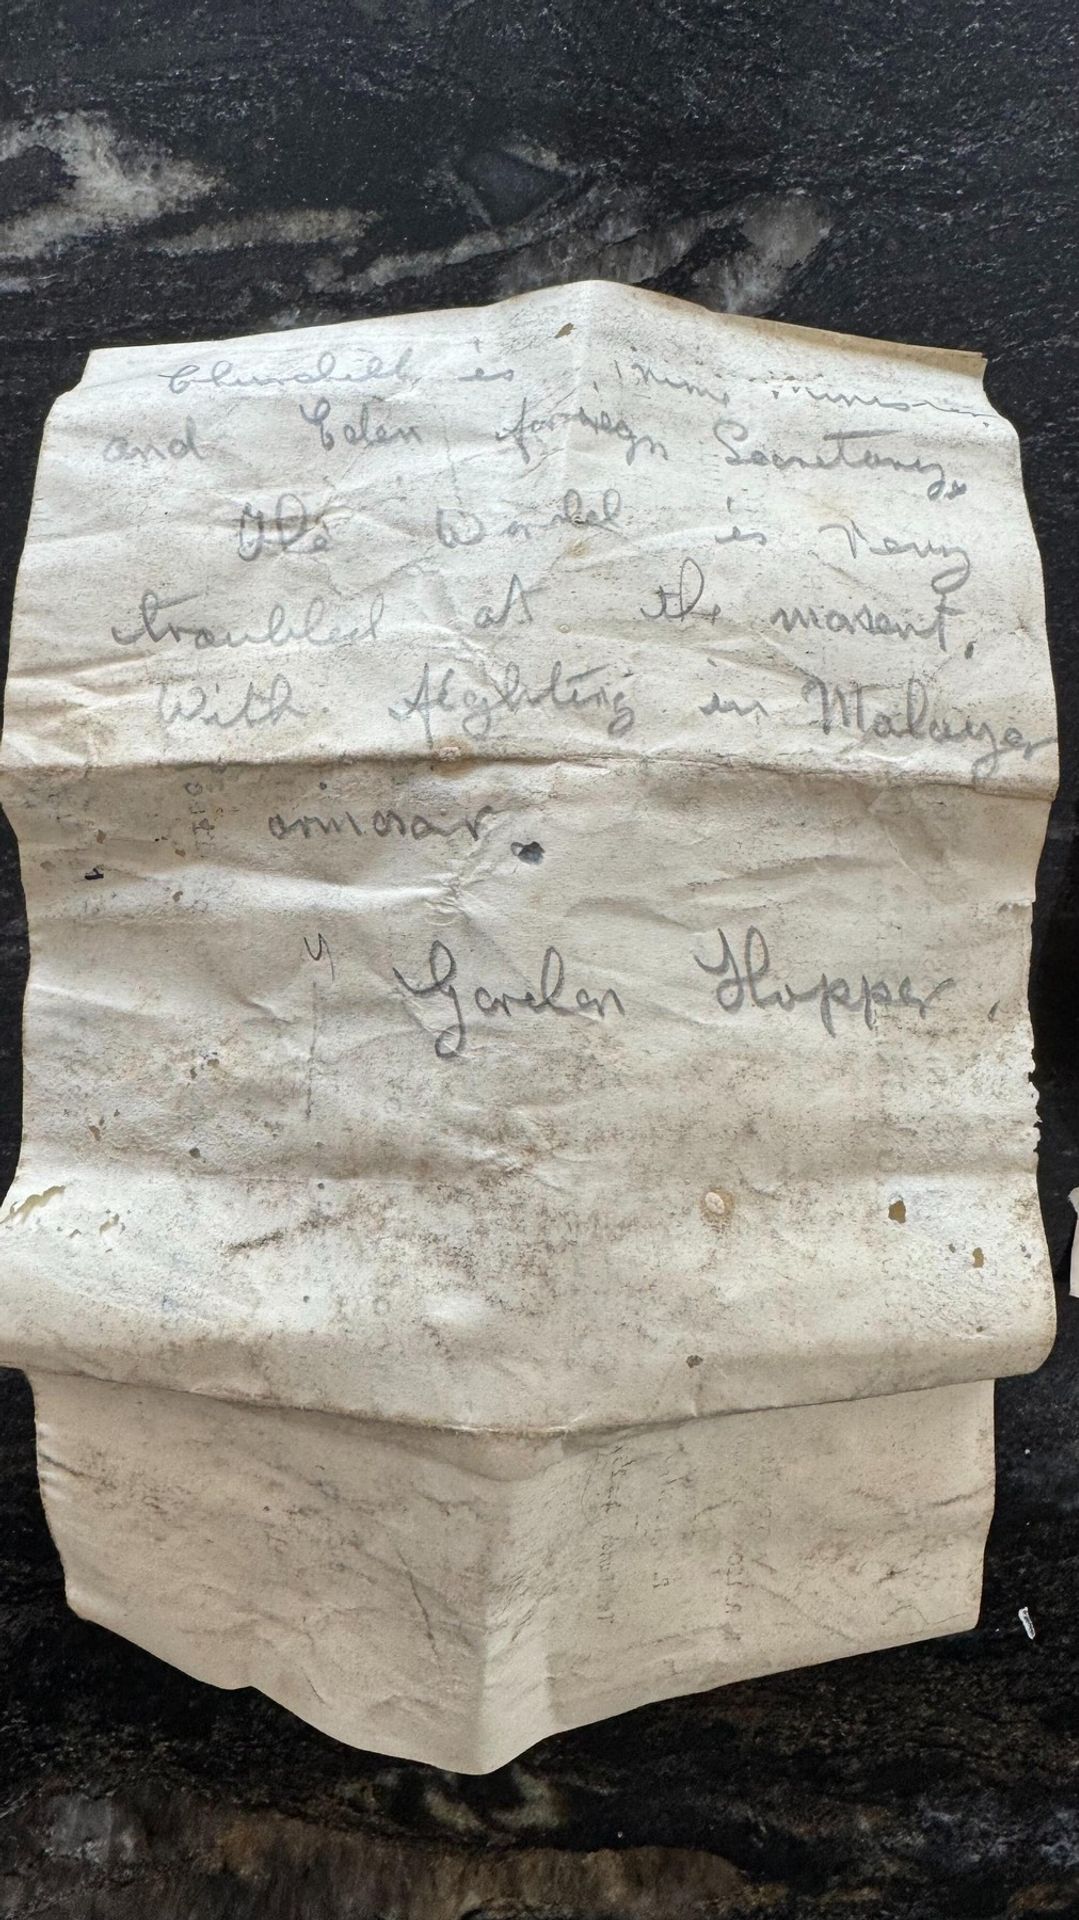 Churchill is Prime minister
and Eden foriegn Secretary.
The World is very
troubled at the moment,
With fighting in Malaya
Gordon Hopper.